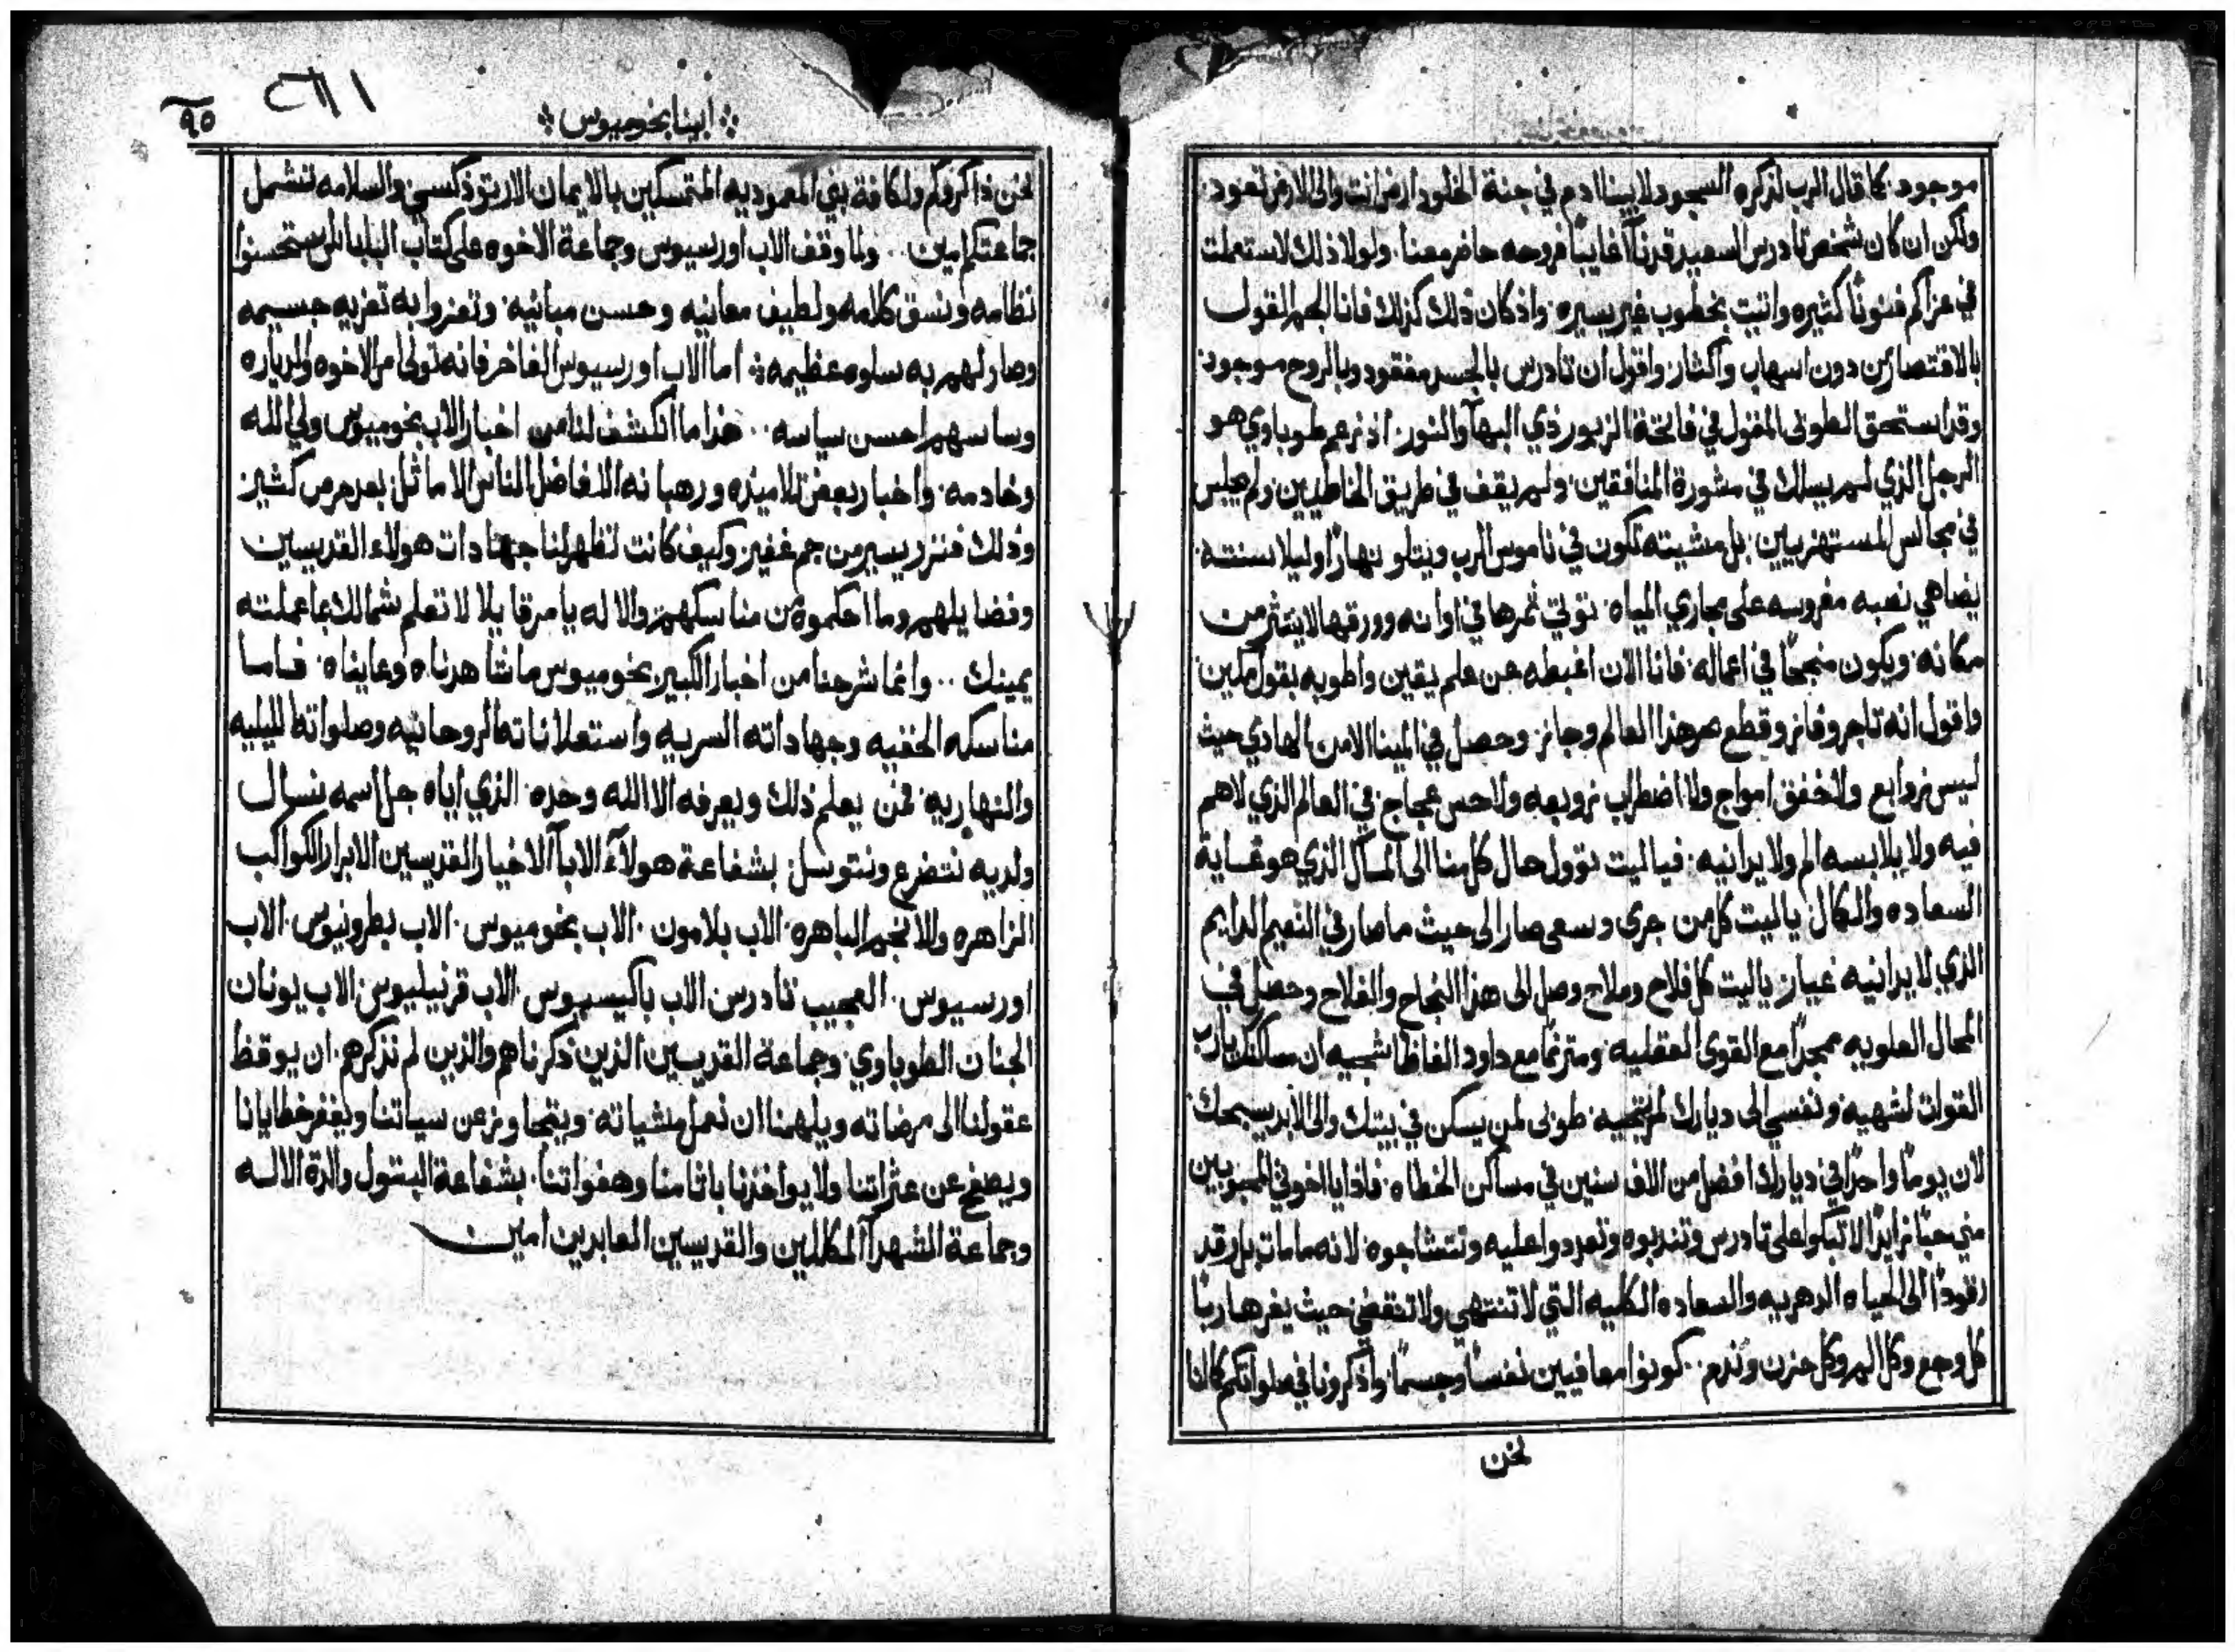 موجود. كما قال الرب لذكره السجود لابينا ادم في جنة الخلود ارض انت والى الارض تعود.
ولكن ان كان شخص تادرس السعيد قد نآ غايبًا فروحه حاضر معنا. ولولا ذلك لاستعملت
في عزاكم فنونًا كثيره واتيت بخطوب غير يسيره. واذ كان ذلك كذلك فانا الجم القول
بالاقتصار من دون اسهاب واكثار واقول ان تادرس بالجسد مفقود وبالروح موجود
وقد استحق الطوبى المقول في فاتحة الزبور ذي البهآ والنور. اذ زعم طوباوي هو
الرجل الذي لم يسلك في مشورة المنافقين. ولم يقف في طريق الخاطيين. ولم يجلس
في مجالس المستهزيين. بل مشيته تكون في ناموس الرب ويتلو نهارًا وليلا سنته.
يضاهي نصبه مغروسه على مجاري المياه. توتي ثمرها في اوانه وورقها لا ينتثر من
مكانه. ويكون منجحًا في اعماله. فانا الان اغبطه عن علم يقين واطوبه بقول مكين.
واقول انه تاجر وفاز وقطع بحر هذا العالم وجاز. وحصل في المينا الامن الهادي حيث
ليس زوابع ولا خفق امواج ولا اضطراب زوبعه ولا حس عجاج. في العالم الذي لا هم
فيه ولا يلابسه الم ولا يدانيه. فيا ليت توول حال كل منا الى المآل الذي هو غاية
السعاده والكمال ياليت كل من جرى وسعى صار الى حيث ما صار في النعيم الدايم
الذي لا يدانيه غيار. ياليت كل فلاح وملاح وصل الى هذا النجاح والفلاح وحصل في
المحال العلويه ممجدًا مع القوى العقليه. ومترنمًا مع داود الفاظا شجيه ان مساكنك يارب
القوات لشهيه. ونفسي الى ديارك لمرتجيه. طوبى لمن يسكن في بيتك والى الابد يسبحك.
لان يومًا واحدًا في ديارك افضل من الاف سنين في مساكن الخطاه. فاذا يا اخوتي المحبوبين
مني حبًا زايدًا لا تبكوا على تادرس وتندبوه وتعددوا عليه وتتشاجوه. لانه ما مات بل رقد
رقودًا الى الحياه الدهريه والسعاده الكليه التي لا تنتهي ولا تنقضي حيث يفر هاربًا
كل وجع وكل الم وكل حزن وندم.. كونوا معافيين نفسًا وجسمًا. واذكرونا في صلواتكم كما انا
نحن
٩٥
ابينا بخوميوس
نحن ذاكروكم ولكافة بني المعموديه المتمسكين بالايمان الارتوذكسي والسلامه تشمل
جماعتكم امين.. ولما وقف الاب اورسيوس وجماعة الاخوه على كتاب البابا استحسنوا
نظامه ونسق كلامه ولطيف معانيه وحسن مبانيه. وتعزوا به تعزيه جسيمه
وصار لهم به سلوه عظيمه. اما الاب اورسيوس الفاخر فانه تولى امر الاخوه والدياره
وساسهم احسن سياسه.. هذا ما انكشف لنا من اخبار الاب بخوميوس ولي الله
وخادمه. واخبار بعض تلاميذه ورهبانه الافاضل الناس الاماثل بعد حرص كثير
وذلك فنزر يسير من جم غفير. وكيف كانت لتظهر لنا جهادات هولاء القديسين
وفضايلهم وما احكموه من مناسكهم والاله يامر قايلا لا تعلم شمالك بما عملته
يمينك.. وانما شرحنا من اخبار الكبير بخوميوس ما شاهدناه وعايناه. فاما
مناسكه الخفيه وجهاداته السريه واستعلاناته الروحانيه وصلواته الليليه
والنهاريه. فمن يعلم ذلك ويعرفه الا الله وحده. الذي اياه جل اسمه نسال
ولديه نتضرع ونتوسل. بشفاعة هولآء الابآ الاخيار القديسين الابرار الكواكب
الزاهره والانجم الباهره. الاب بلامون. الاب بخوميوس. الاب بطرونيوس. الاب
اورسيوس. العجيب تادرس الاب باكيسيوس. الاب قرنيليوس. الاب يونان
الجنان الطوباوي. وجماعة القديسين الذين ذكرناهم والذين لم نذكرهم. ان يوقظ
عقولنا الى مرضاته ويلهمنا ان نعمل مشياته. ويتجاوز عن سياتنا ويغفر خطايانا
ويصفح عن عثراتنا ولا يواخذنا باثامنا وهفواتنا. بشفاعة البتول والدة الاله
وجماعة الشهدآ المكللين والقديسين العابدين امين